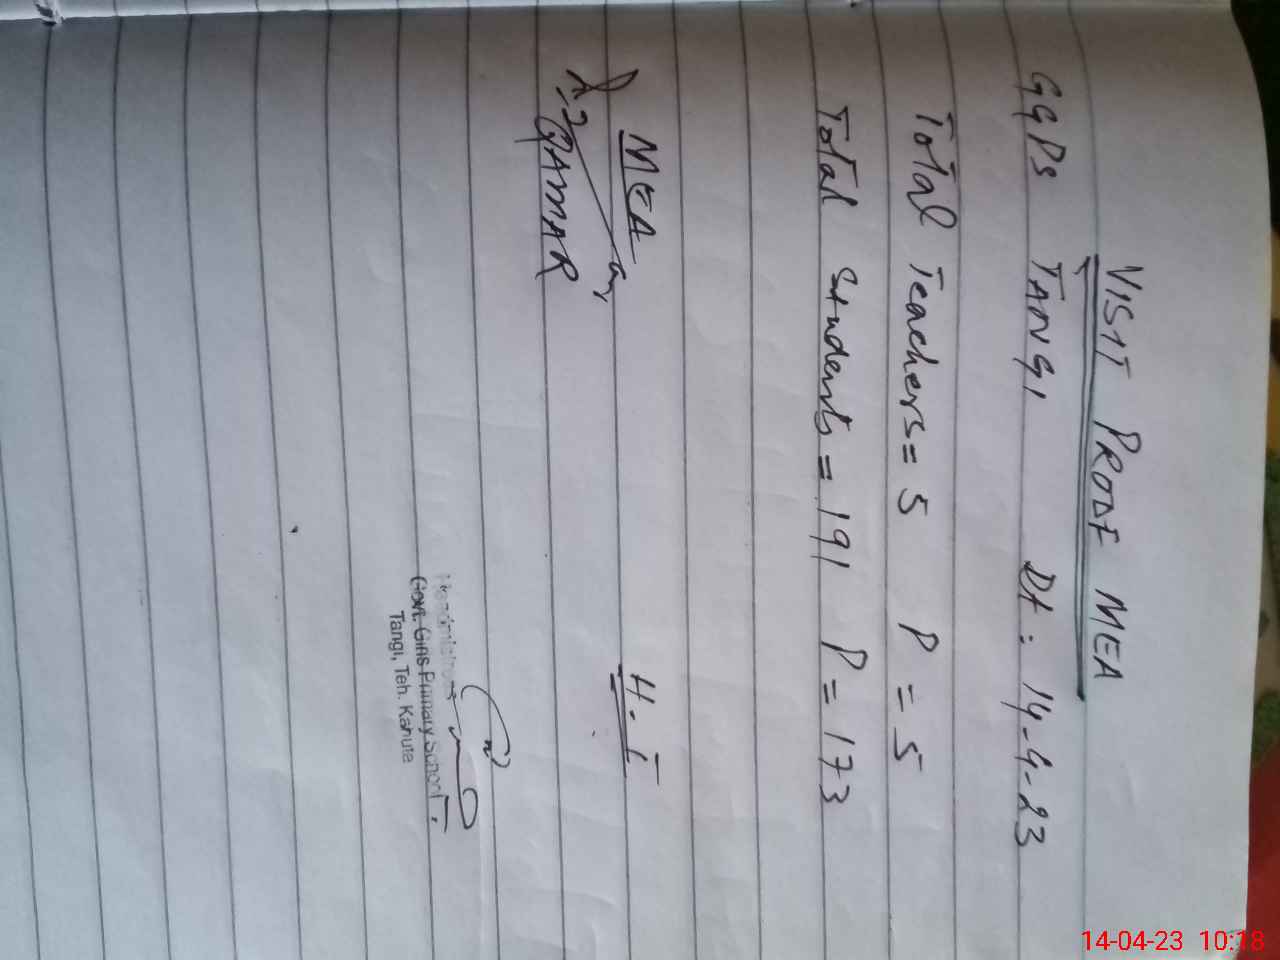 VISIT PROOF MEA
GGPS TANGI Dt: 14-4-23
Total Teachers = 5 P = 5
Total Students = 191 P = 173
MEA H-T
QAMAR
Headmistress
Govt. Girls Primary School
Tangi, Teh. Kahuta
14-04-23 10:18